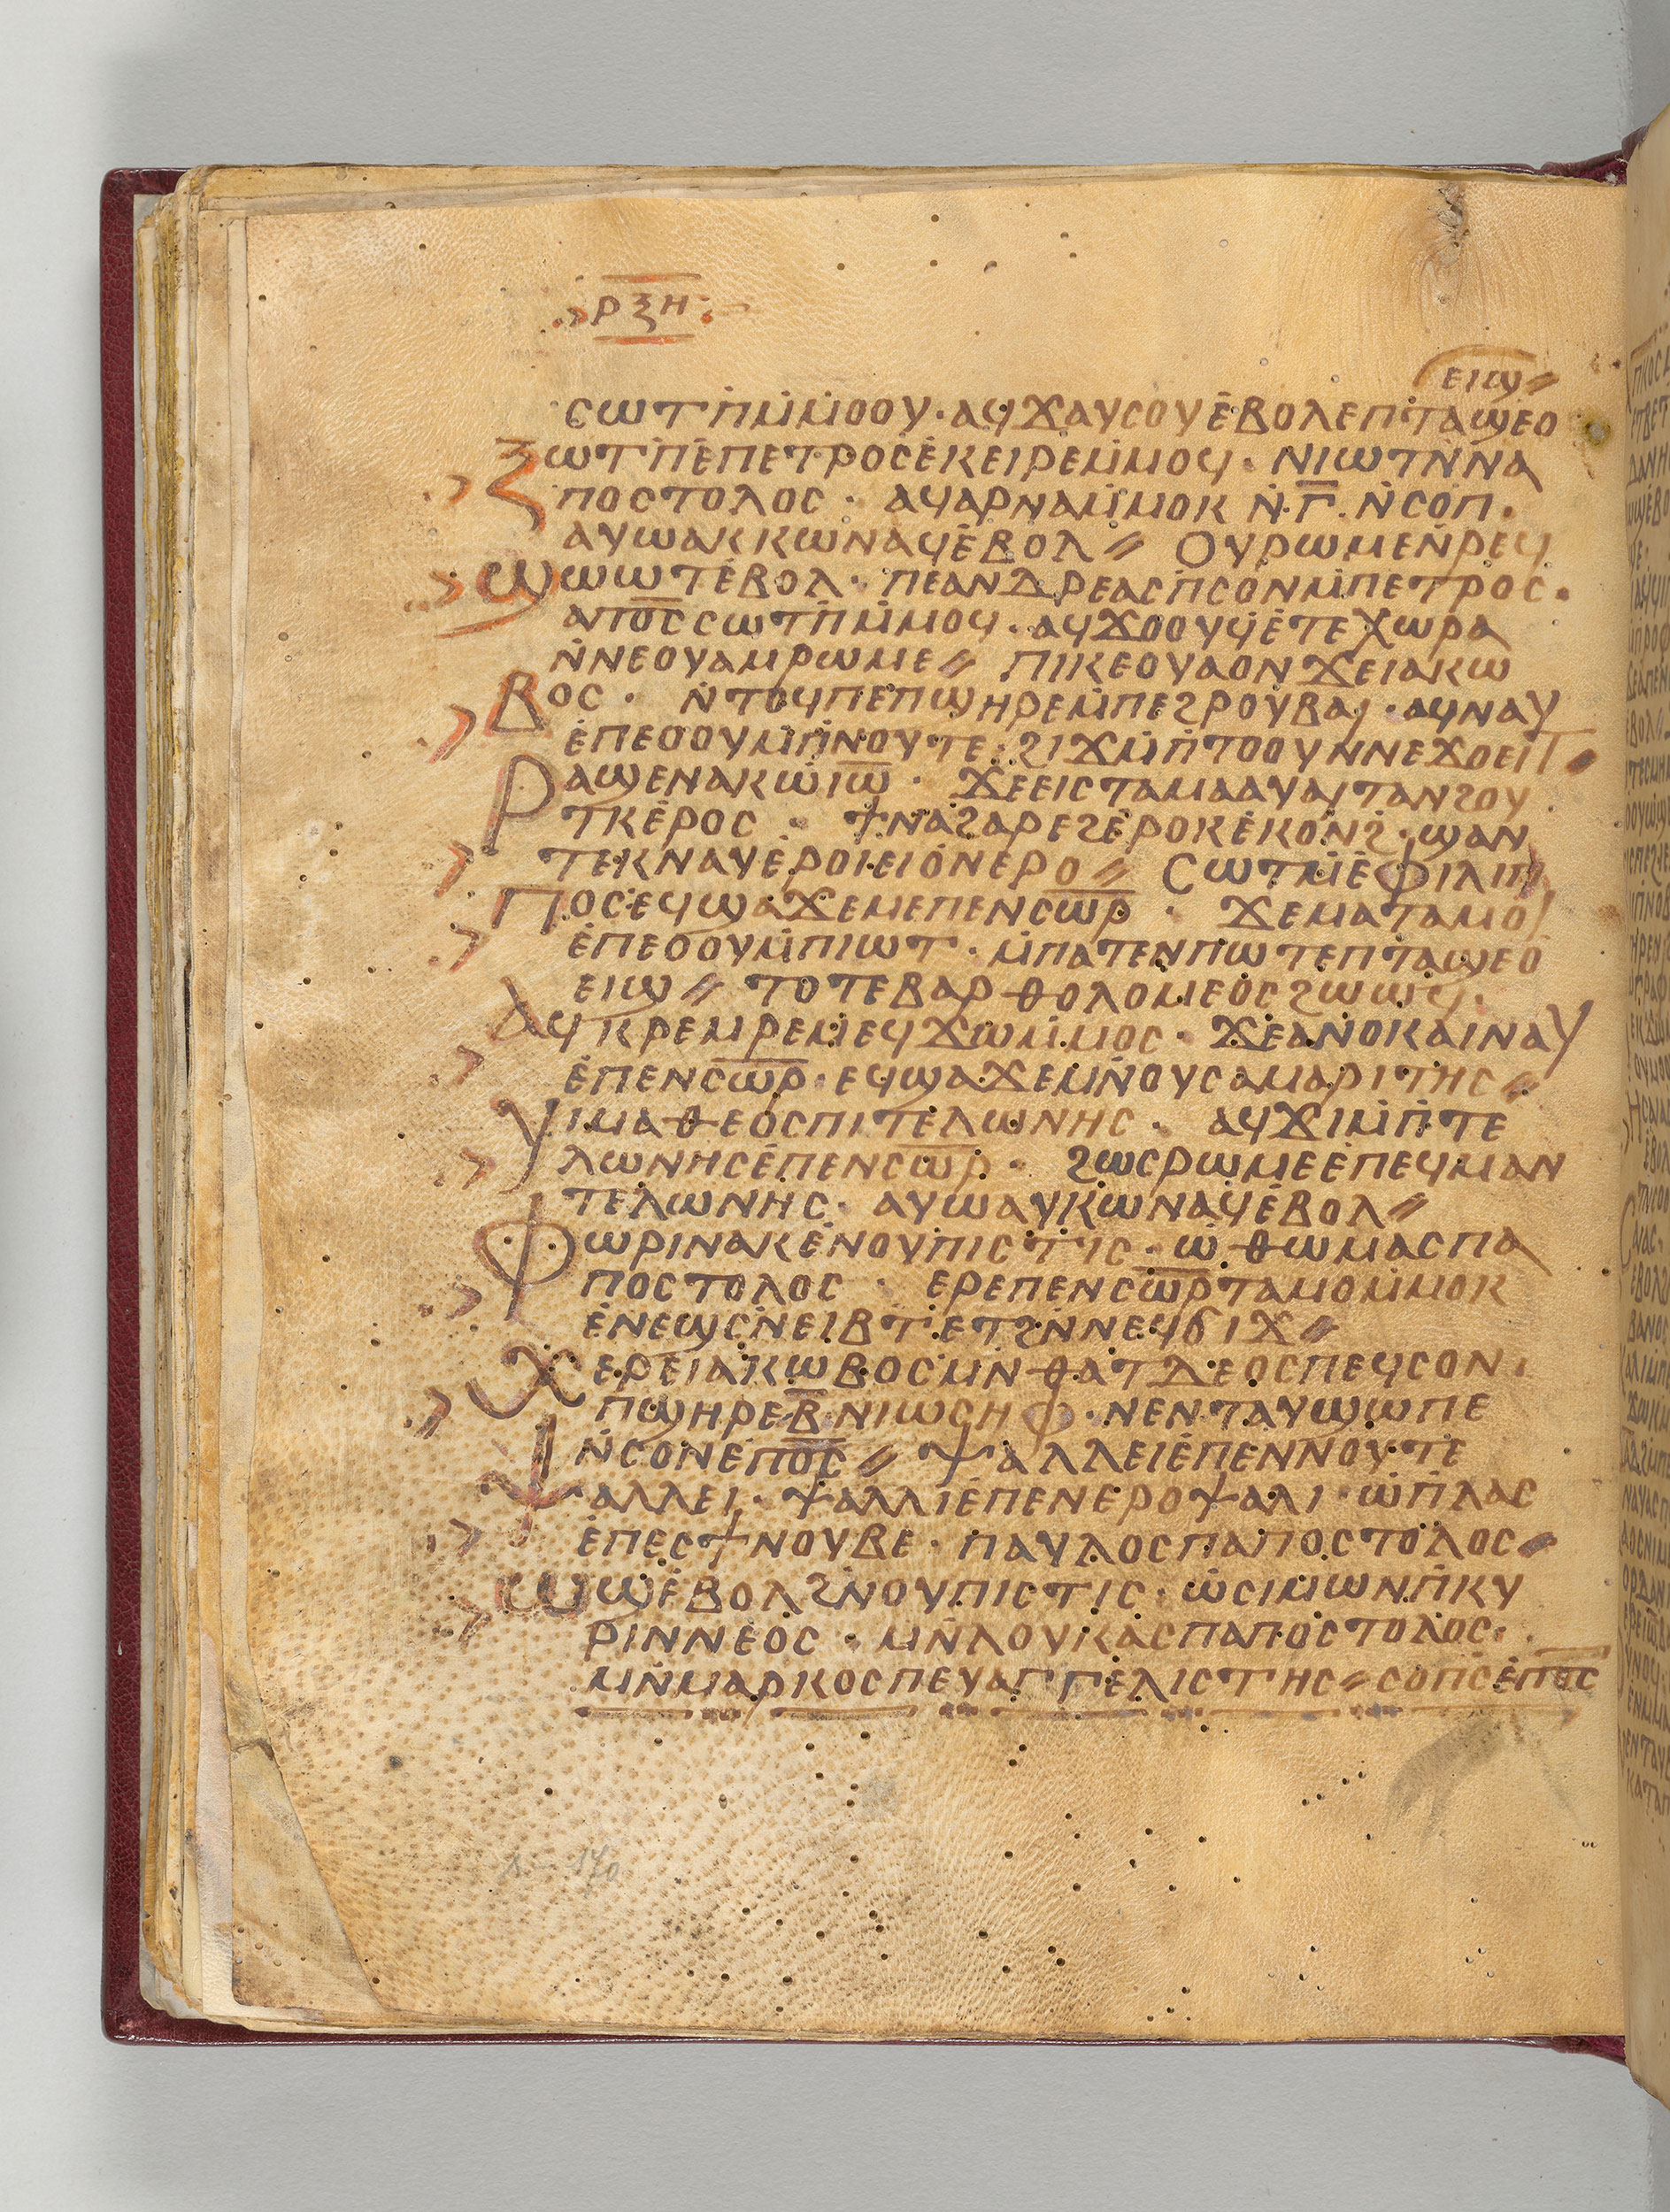 ⲣⲝⲏ
ⲉⲓϣ⸗
ⲥⲱⲧⲡ̇ⲙ̇ⲙ̇ⲟⲟⲩ · ⲁϥϫⲁⲩⲥⲟⲩⲉ̇ⲃⲟⲗⲉⲡⲧⲁϣⲉⲟ
ⲝⲱⲧⲡ̇ⲉ̇ⲡⲉⲧⲣⲟⲥⲉ̇ⲕⲉⲓⲣⲉⲙ̇ⲙⲟϥ · ⲛⲓⲱⲧⲛ̇ⲛⲁ
ⲡⲟⲥⲧⲟⲗⲟⲥ · ⲁϥⲁⲣⲛⲁⲙ̇ⲙⲟⲕ ⲛ̇·ⲅ̅·ⲛ̇ⲥⲟⲡ ·
ⲁⲩⲱⲁⲕⲕⲱⲛⲁϥⲉ̇ⲃⲟⲗ⸗ ⲟⲩⲣⲱⲙⲉⲛ̇ⲣⲉϥ
ϣⲱⲱⲧⲉ̇ⲃⲟⲗ · ⲡⲉⲁⲛⲇⲣⲉⲁⲥⲡ̇ⲥⲟⲛⲙ̇ⲡⲉⲧⲣⲟⲥ ·
ⲁⲡⲟ̅ⲥ̅ⲥⲱⲧⲡ̇ⲙ̇ⲙⲟϥ · ⲁϥϫⲟⲟⲩϥⲉ̇ⲧⲉⲭⲱⲣⲁ
ⲛ̇ⲛⲉⲟⲩⲁⲙⲣⲱⲙⲉ⸗ ⲡⲓⲕⲉⲟⲩⲁⲟⲛ ϫⲉⲓⲁⲕⲱ
ⲃⲟⲥ · ⲛ̇ⲧⲟϥⲡⲉⲡϣⲏⲣⲉⲙ̇ⲡⲉϩⲣⲟⲩⲃⲁⲓ · ⲁϥⲛⲁⲩ
ⲉ̇ⲡⲉⲟⲟⲩⲙ̇ⲡ̇ⲛⲟⲩⲧⲉ · ϩⲓϫⲙ̇ⲡ̇ⲧⲟⲟⲩⲛⲛⲉϫⲟⲉⲓⲧ⸗
ⲣⲁϣⲉⲛⲁⲕⲱ̇ⲓ̅ⲱ̅ · ϫⲉⲉⲓⲥⲧⲁⲙⲁⲁⲩⲁⲓⲧⲁⲛϩⲟⲩ
ⲧⲕ̇ⲉ̇ⲣⲟⲥ · ϯⲛⲁϩⲁⲣⲉϩⲉ̇ⲣⲟⲕⲉ̇ⲕⲟⲛϩ · ϣⲁⲛ
ⲧⲉⲕⲛⲁⲩⲉ̇ⲣⲟⲓⲉⲓⲟ̇ⲛⲉⲣⲟ⸗ ⲥⲱⲧⲙ̇ⲉ̇ⲫⲓⲗⲓⲡ
ⲡⲟⲥⲉϥϣⲁϫⲉⲙⲉⲡⲉⲛⲥ̅ⲱ̅ⲣ̅ · ϫⲉⲙⲁⲧⲁⲙⲟⲓ
ⲉ̇ⲡⲉⲟⲟⲩⲙ̇ⲡⲓⲱⲧ · ⲙ̇ⲡⲁⲧⲉⲛⲡⲱⲧⲉⲡⲧⲁϣⲉⲟ
ⲉⲓϣ⸗ ⲧⲟⲧⲉⲃⲁⲣⲑⲟⲗⲟⲙⲉⲟⲥϩⲱⲱϥ ·
ⲁϥⲕⲣⲉⲙⲣⲉⲙⲉϥϫⲱⲙ̇ⲙⲟⲥ · ϫⲉⲁⲛⲟⲕⲁⲓⲛⲁⲩ
ⲉ̇ⲡⲉⲛⲥ̅ⲱ̅ⲣ̅ · ⲉϥϣⲁϫⲉⲙⲛ̇ⲟⲩⲥⲁⲙⲁⲣⲓⲧⲏⲥ⸗
ⲩⲓⲙⲁⲑⲉⲟⲥⲡⲓⲧⲉⲗⲱⲛⲏⲥ · ⲁϥϫⲓⲙ̇ⲡ̇ⲧⲉ
ⲗⲱⲛⲏⲥⲉ̇ⲡⲉⲛⲥ̅ⲱ̅ⲣ̅ · ϩⲱⲥⲣⲱⲙⲉⲉ̇ⲡⲉϥⲙⲁⲛ
ⲧⲉⲗⲱⲛⲏⲥ · ⲁⲩⲱⲁⲩⲕⲱⲛⲁϥⲉ̇ⲃⲟⲗ⸗
ⲫⲱⲣⲓⲛⲁⲕⲉ̇ⲛⲟⲩⲡⲓⲥⲧⲓⲥ · ⲱ̇ ⲑⲱⲙⲁⲥⲡⲁ
ⲡⲟⲥⲧⲟⲗⲟⲥ · ⲉⲣⲉⲡⲉⲛⲥ̅ⲱ̅ⲣ̅ⲧⲁⲙⲟⲙ̇ⲙⲟⲕ
ⲉ̇ⲛⲉϣⲥ̇ⲛ̇ⲉⲓⲃⲧ̇ⲉⲧϩⲛ̇ⲛⲉϥϭⲓϫ⸗
ⲭⲉⲣⲉⲓⲁⲕⲱⲃⲟⲥⲙ̇ⲛⲑⲁⲧⲇⲉⲟⲥⲡⲉϥⲥⲟⲛ ·
ⲡϣⲏⲣⲉⲃ̅ⲛⲓⲱⲥⲏⲫ · ⲛⲉⲛⲧⲁⲩϣⲱⲡⲉ
ⲛ̇ⲥⲟⲛⲉ̇ⲡⲟ̅ⲥ̅⸗ ⲯⲁⲗⲗⲉⲓⲉ̇ⲡⲉⲛⲛⲟⲩⲧⲉ
ⲯⲁⲗⲗⲉⲓ · ⲯⲁⲗⲗⲓⲉ̇ⲡⲉⲛⲉⲣⲟⲯⲁⲗⲓ · ⲱ̇ⲡ̇ⲗⲁⲥ
ⲉ̇ⲡⲉⲥϯⲛⲟⲩⲃⲉ · ⲡⲁⲩⲗⲟⲥⲡⲁⲡⲟⲥⲧⲟⲗⲟⲥ⸗
ⲱϣⲉ̇ⲃⲟⲗϩⲛ̇ⲟⲩⲡⲓⲥⲧⲓⲥ · ⲱ̇ⲥⲓⲙⲱⲛⲡ̇ⲕⲩ
ⲣⲓⲛⲛⲉⲟⲥ · ⲙⲛ̇ⲗⲟⲩⲕⲁⲥⲡⲁⲡⲟⲥⲧⲟⲗⲟⲥ ·
ⲙⲛ̇ⲙⲁⲣⲕⲟⲥⲡⲉⲩⲁⲅⲅⲉⲗⲓⲥⲧⲏⲥ⸗ⲥⲟⲡⲥⲉ̇ⲡⲟ̅ⲥ̅